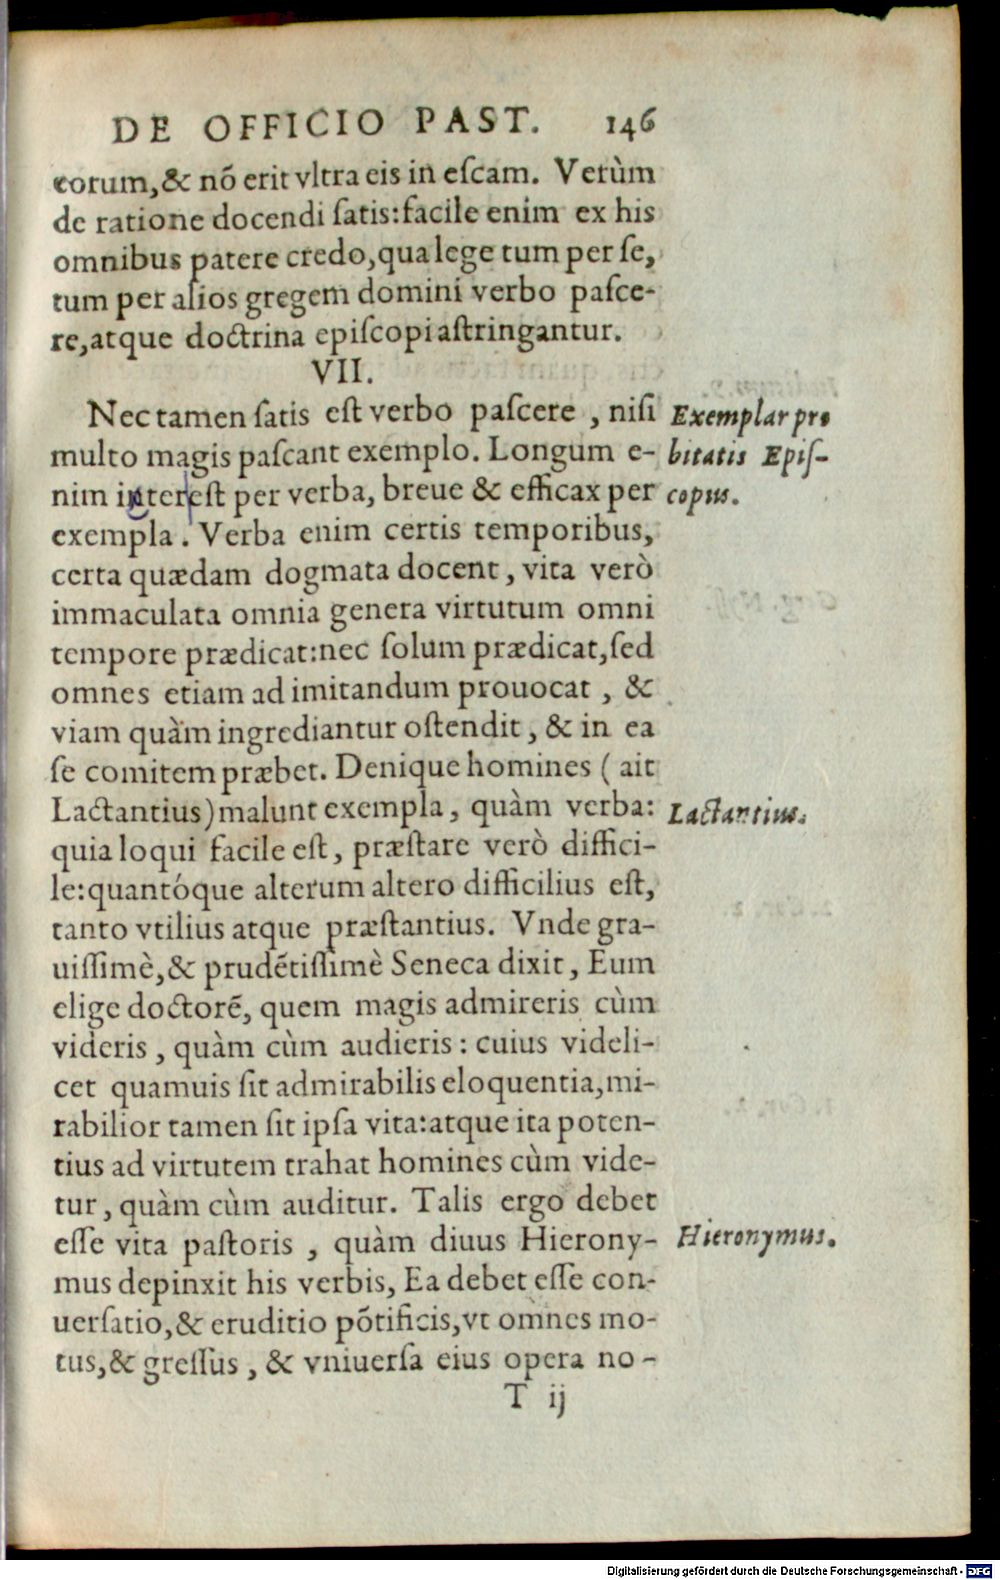 DE OFFICIO PAST. 146
eorum,& nõ erit vltra eis in eſcam. Verùm
de ratione docendi ſatis:facile enim ex his
omnibus patere credo,qua lege tum per ſe,
tum per alios gregem domini verbo paſce-
re,atque doctrina epiſcopi aſtringantur.
VII.
Nec tamen ſatis eſt verbo paſcere , niſi
multo magis paſcant exemplo. Longum e-
nim interest per verba, breue & efficax per
exempla . Verba enim certis temporibus,
certa quædam dogmata docent, vita verò
immaculata omnia genera virtutum omni
tempore prædicat:nec ſolum prædicat,ſed
omnes etiam ad imitandum prouocat , &
viam quàm ingrediantur oſtendit, & in ea
ſe comitem præbet. Denique homines ( ait
Lactantius)malunt exempla, quàm verba:
quia loqui facile eſt, præſtare verò diffici-
le:quantóque alterum altero difficilius eſt,
tanto vtilius atque præſtantius. Vnde gra-
uiſſimè,& prudẽtiſſimè Seneca dixit, Eum
elige doctorẽ, quem magis admireris cùm
videris , quàm cùm audieris : cuius videli-
cet quamuis ſit admirabilis eloquentia,mi-
rabilior tamen ſit ipſa vita:atque ita poten-
tius ad virtutem trahat homines cùm vide-
tur, quàm cùm auditur. Talis ergo debet
eſſe vita paſtoris , quàm diuus Hierony-
mus depinxit his verbis, Ea debet eſſe con-
uerſatio,& eruditio põtificis,vt omnes mo-
tus,& greſſus , & vniuerſa eius opera no-
T ij
Exemplar pro
bitatis Epiſ-
copus.
Lactantius.
Hieronymus.
Digitalisierung gefördert durch die Deutsche Forschungsgemeinschaft - DFG